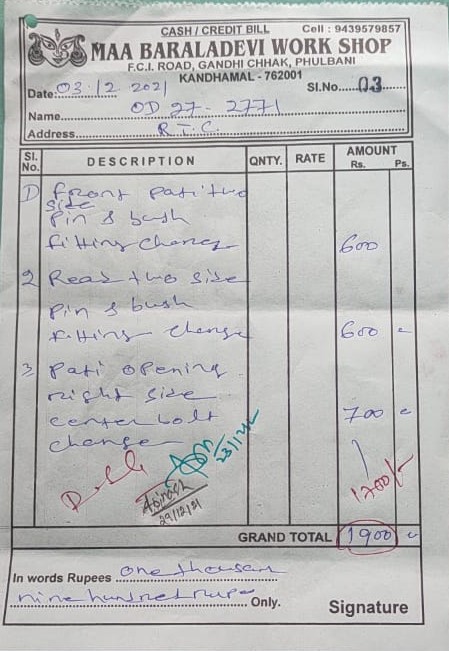 CASH / CREDIT BILL Cell : 9439579857
MAA BARALADEVI WORK SHOP
F.C.I. ROAD, GANDHI CHHAK, PHULBANI
KANDHAMAL - 762001
Date: 03/12 2021 Sl.No. 03
Name OD 27-2771
Address R.T.C.
Sl. No. DESCRIPTION QNTY. RATE AMOUNT Rs. Ps.
1) front pati two
side
pin & bush
fitting change 600
2 Rear two side
pin & bush
fitting change 600
3 Pati opening
right side
center bolt 700
change
23/12/21
1700/-
Abinash
29/12/21
GRAND TOTAL 1900
In words Rupees one thousan
nine hundred rupe Only.
Signature